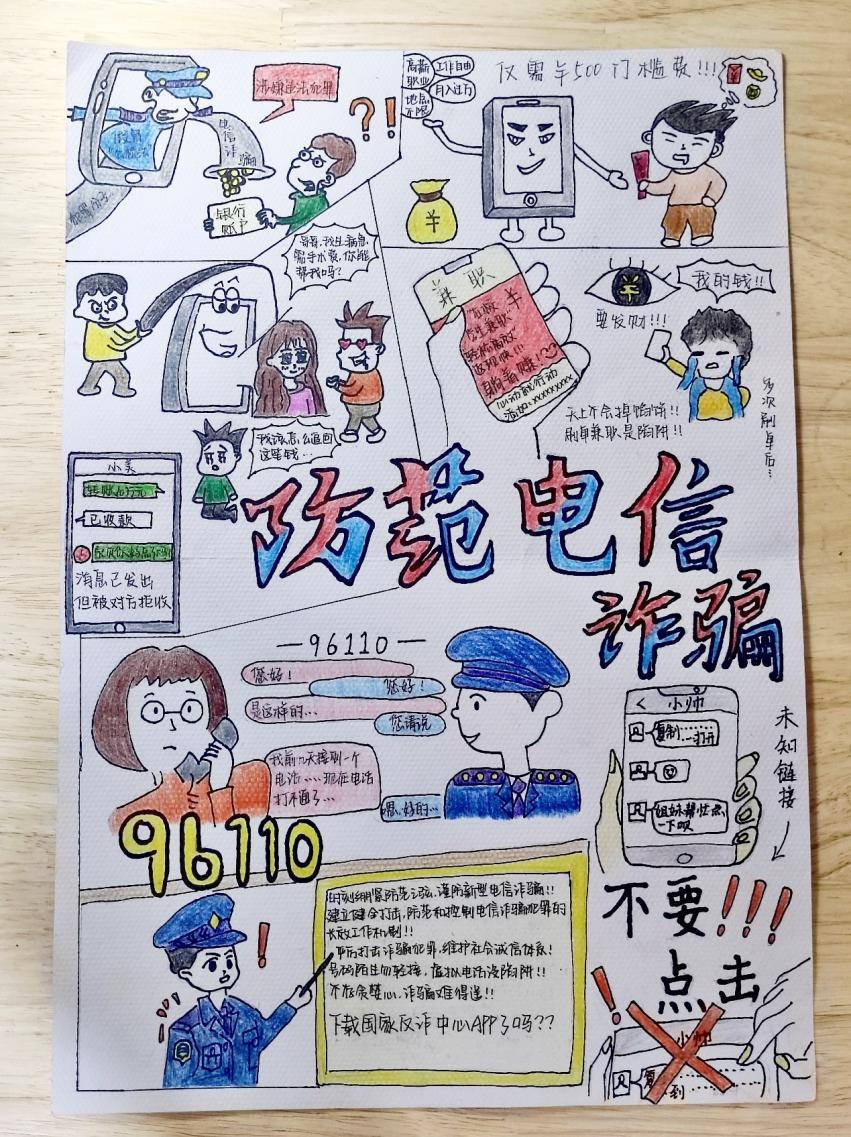 涉嫌违法犯罪
?!
电信诈骗
银行
账户
高薪
职业
工作自由
月入过万
地点
不限
仅需¥500门槛费!!!
¥
哥哥,我生病急
需手术费,你能
帮我吗?
我该怎么追回
这些钱…
兼职
¥
心动就行动
¥
要发财!!!
我的钱!!
多次刷单后…
天上不会掉馅饼!!
刷单兼职是陷阱!!
小美
已收款
消息已发出
但被对方拒收
防范电信
诈骗
—96110—
您好!
您好!
是这样的…
您请说
我前几天接到一个
电话……现在电话
打不通了…
嗯,好的…
96110
小帅
复制……
…打开
姐妹帮忙点
一下呗
未知链接
不要!!!
点击
!
小帅
复
到
!
时刻绷紧防范之弦,谨防新型电信诈骗!!
建立健全打击,防范和控制电信诈骗犯罪的
长效工作机制!!
严厉打击诈骗犯罪,维护社会诚信体系!
号码陌生勿轻接,虚拟电话设陷阱!!
不存贪婪心,诈骗难得逞!!
下载国家反诈中心APP了吗??